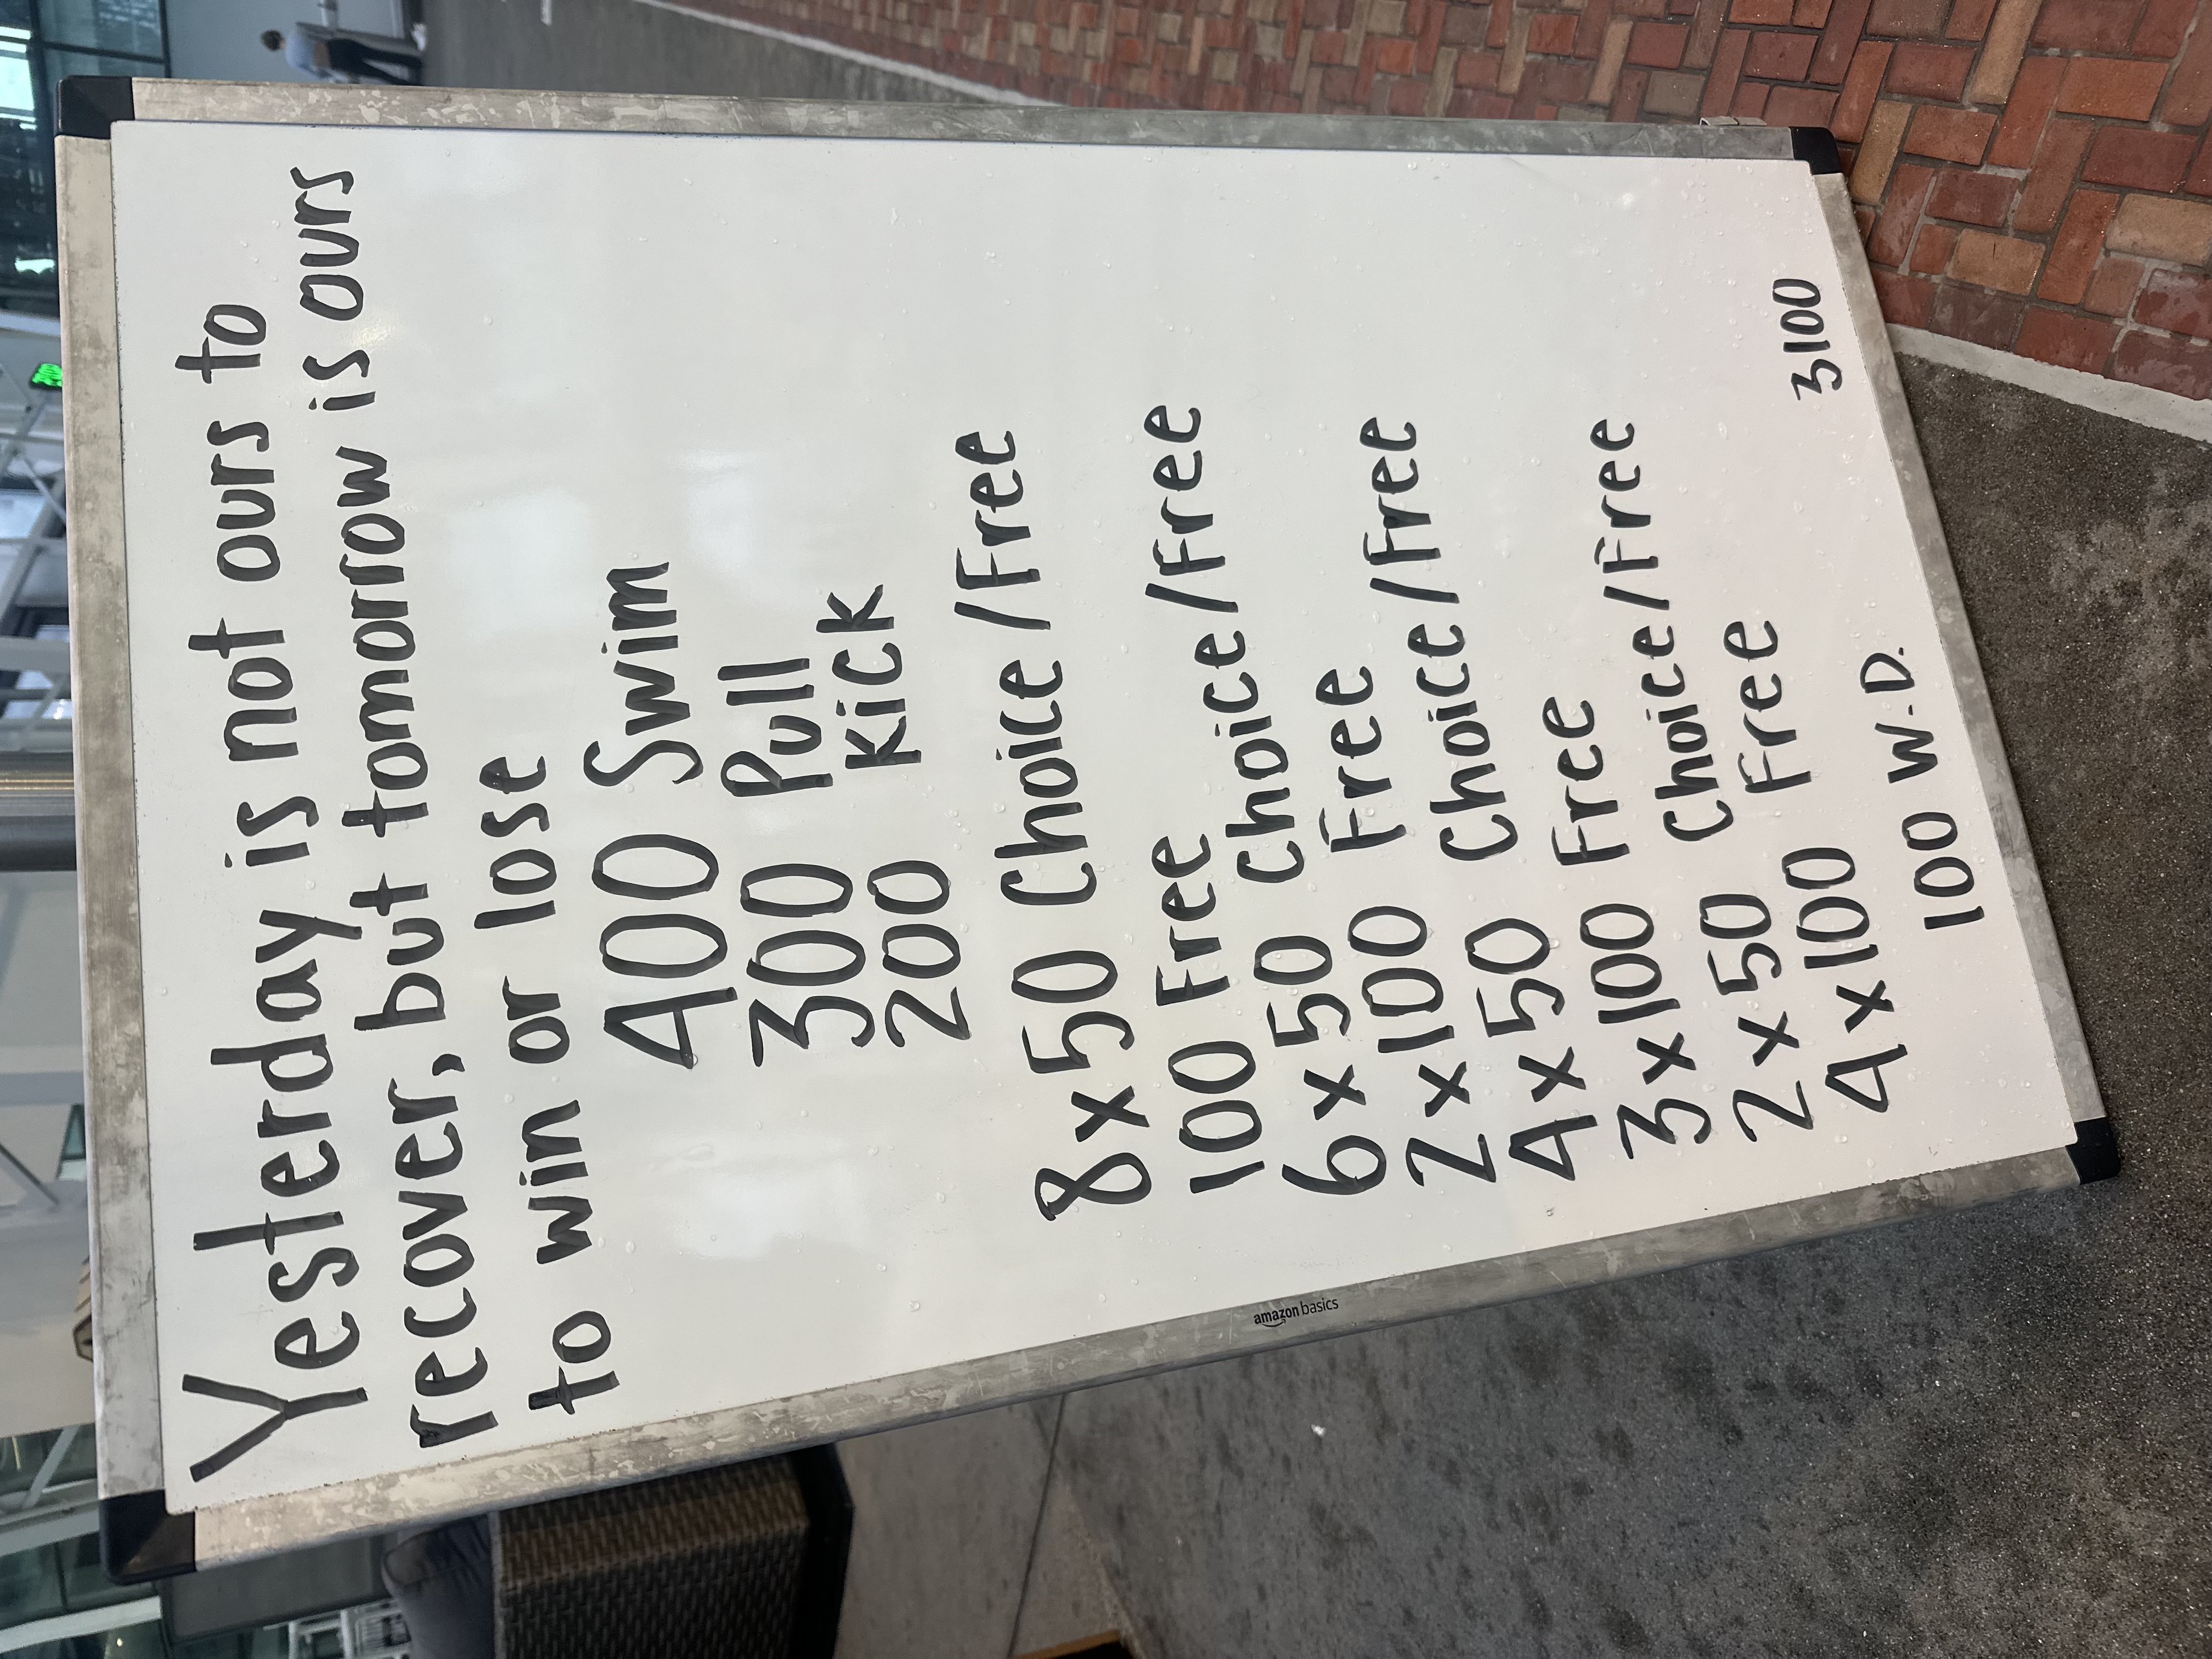 Yesterday is not ours to
recover, but tomorrow is ours
to win or lose
400 Swim
300 Pull
200 Kick
8 x 50 Choice / Free
100 Free
6 x 50 Choice / Free
2 x 100 Free
4 x 50 Choice / Free
3 x 100 Free
2 x 50 Choice / Free
4 x 100 Free
100 W.D.
3100
amazon basics